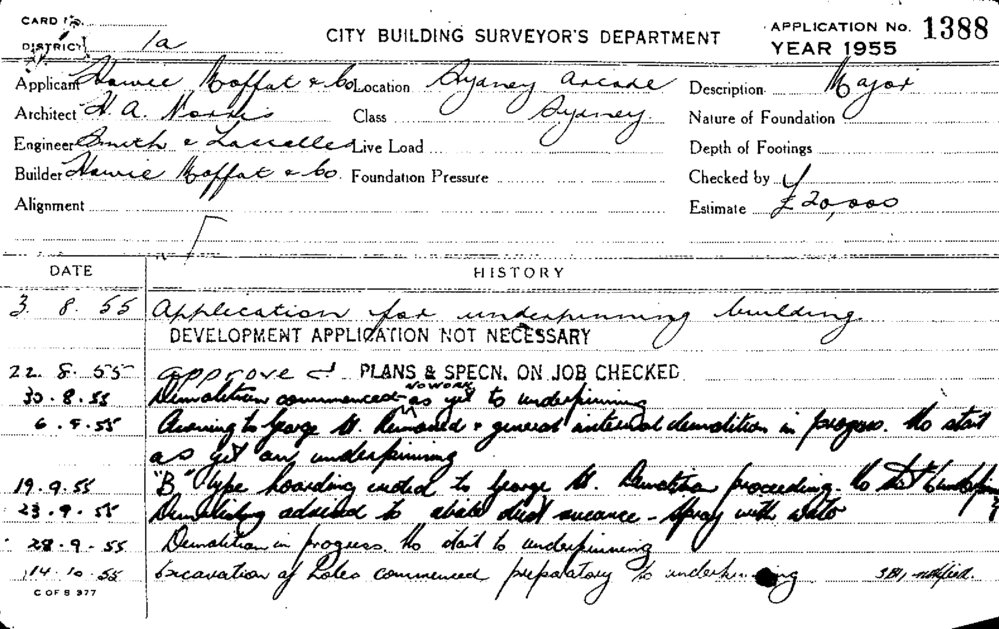 CARD No.
DISTRICT 1a
CITY BUILDING SURVEYOR'S DEPARTMENT
APPLICATION No. 1388
YEAR 1955
Applicant Howie Moffat & Co Location Sydney Arcade Description Major
Architect H. A. Norris Class Sydney. Nature of Foundation
Engineer Smith & Lascelles Live Load Depth of Footings
Builder Howie Moffat & Co. Foundation Pressure Checked by
Alignment Estimate £20,000
DATE HISTORY
3. 8. 55 Application for underpinning building
DEVELOPMENT APPLICATION NOT NECESSARY
22. 8. 55 approved PLANS & SPECN. ON JOB CHECKED
30. 8. 55 Demolition commenced NO WORK as yet to underpinning
6. 9. 55 Awning to George St. Removed & general internal demolition in progress. No start
as yet on underpinning
19. 9. 55 "B" type hoarding erected to George St. Demolition proceeding. No start to underpinning
23. 9. 55 advised to abate dust nuisance - spray with water
28. 9. 55 Demolition in progress. No start to underpinning
14. 10. 55 Excavation of holes commenced preparatory to underpinning notified.
C OF S 377